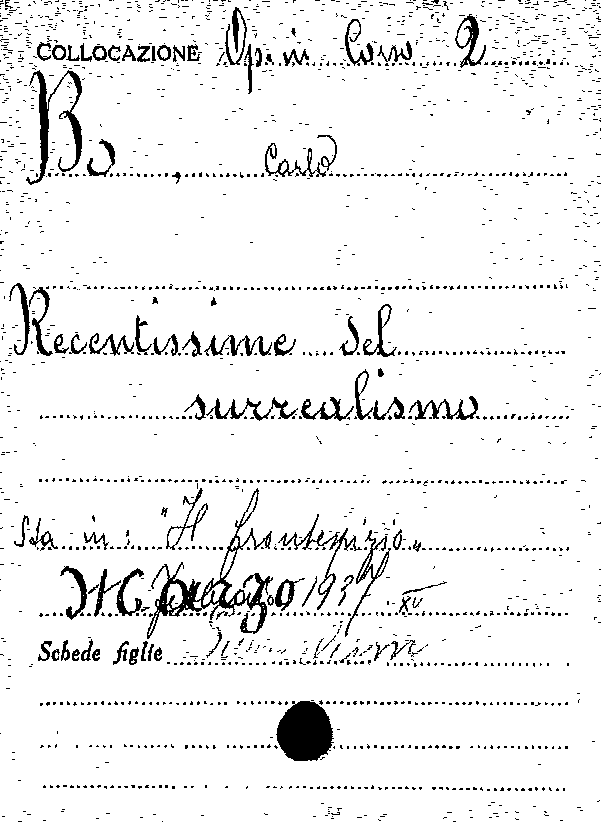 COLLOCAZIONE Op. in Corso 2
Bo, Carlo
Recentissime del
surrealismo
Sta in: "Il frontespizio"
1937 XV
Schede figlie